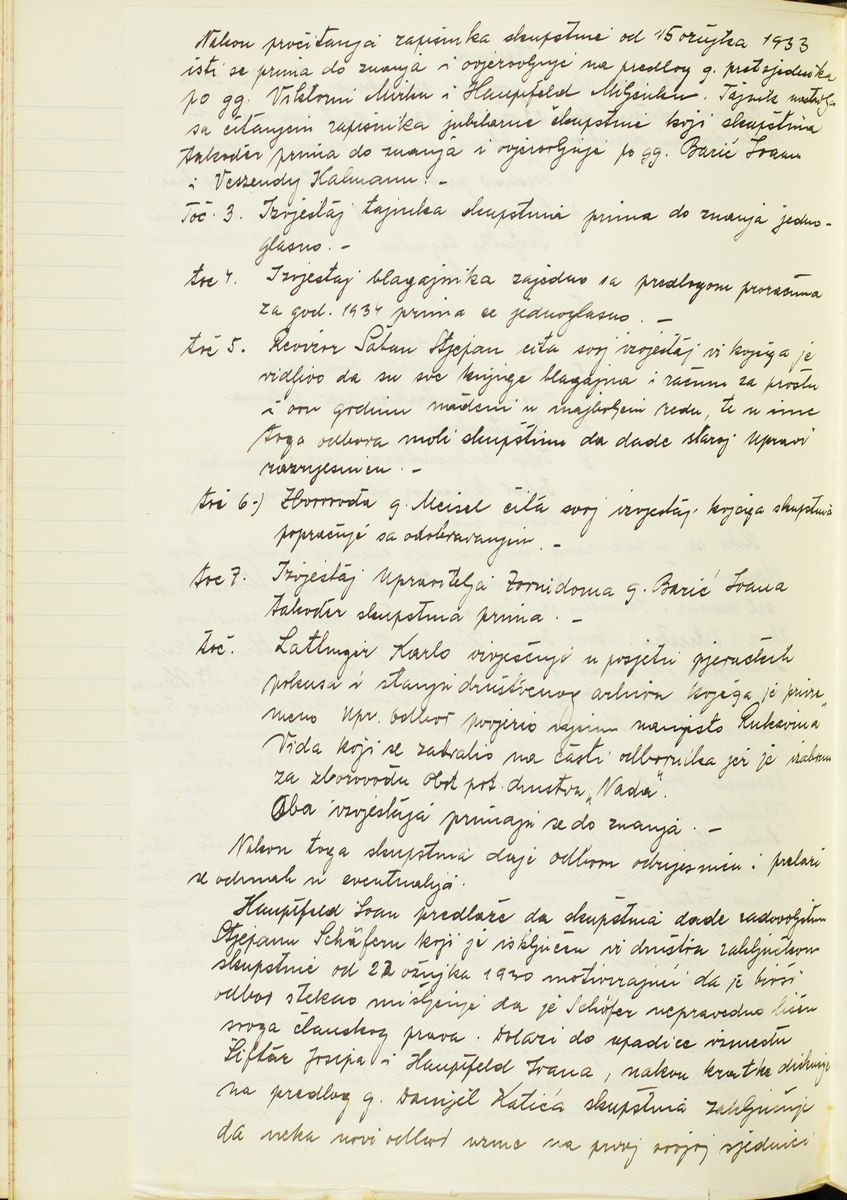 Nakon pročitanja zapisnika skupštine od 15 ožujka 1933
isti se prima do znanja i ovjerovljuje na predlog g. pretsjednika
po gg. Viktorin Mirku i Hauptfeld Miljenku. Tajnik nastavlja
sa čitanjem zapisnika jubilarne skupštine koji skupština
također prima do znanja i ovjerovljuje po gg. Barić Ivanu
i Veszendy Kalmanu. –
Toč. 3. Izvještaj tajnika skupština prima do znanja jedno-
glasno. –
toč 4. Izvještaj blagajnika zajedno sa predlogom proračuna
za god. 1934 prima se jednoglasno. –
toč 5. Revizor Šaban Stjepan čita svoj izvještaj iz kojega je
vidljivo da su sve knjige blagajna i računi za prošlu
i ovu godinu nađeni u najboljem redu, te u ime
toga odbora moli skupštinu da dade staroj upravi
razrješnicu. –
toč 6-) Zborovođa g. Meisel čita svoj izvještaj kojega skupština
popraćuje sa odobravanjem. –
toč 7. Izvještaj upravitelja Zorinidoma g. Barić Ivana
također skupština prima. –
toč. Lattinger Karlo izvješćuje o posjetu pjevačkih
pokusa i stanju društvenog arhiva kojega je privre
meno upr. odbor povjerio njemu namjesto Rukavina
Vida koji se zahvalio na časti odbornika jer je izabran
za zborovođu Obrt. pot. društva „Nada".
Oba izvještaja primaju se do znanja. –
Nakon toga skupština daje odboru odrješnicu i prelazi
se odmah u eventualija.
Hauptfeld Ivan predlaže da skupština dade zadovoljštinu
Stjepanu Schäferu koji je isključen iz društva zaključkom
skupštine od 22 ožujka 1930 motivirajući da je bivši
odbor stekao mišljenje da je Schäfer nepravedno lišen
svoga članskog prava. Dolazi do upadice između
Šiftar Josipa i Hauptfeld Ivana, nakon kratke diskusije
na predlog g. Danijel Katića skupština zaključuje
da neka novi odbor uzme na prvoj svojoj sjednici